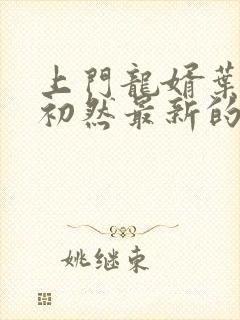 上門龍婿葉
初然最新的
姚继東